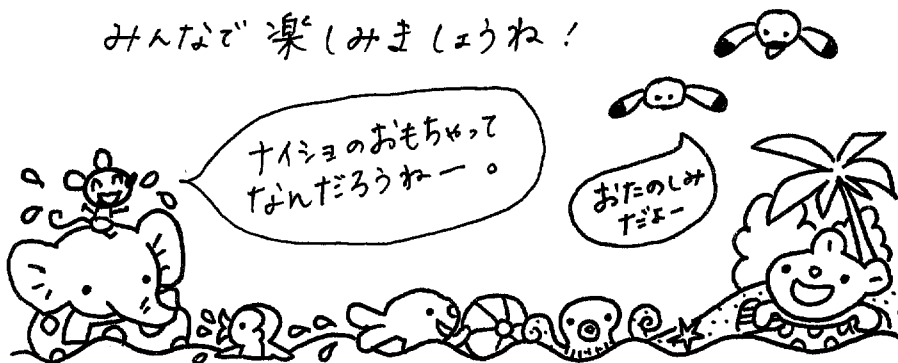 みんなで楽しみましょうね！
ナイショのおもちゃって
なんだろうねー。
おたのしみ
だよー